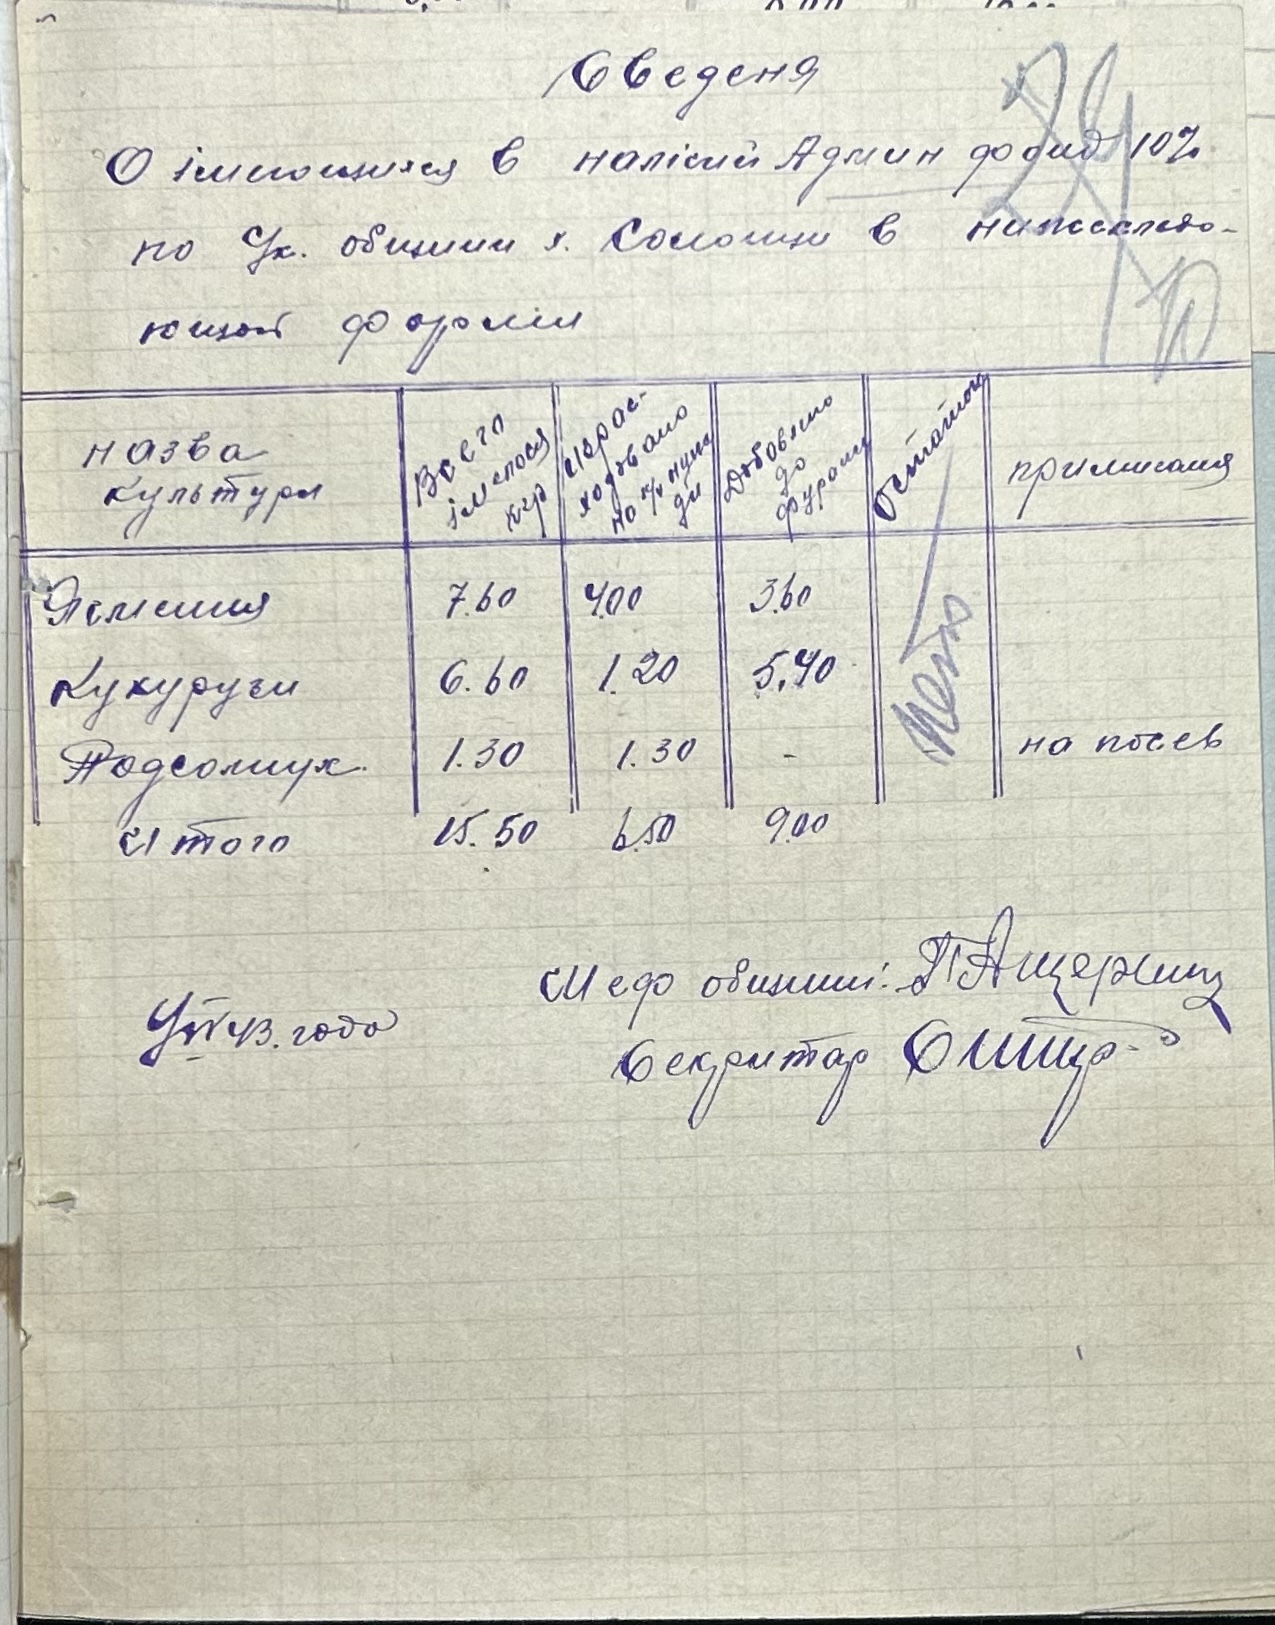 Сведеня
О імеющихся в налісии Админ фонд 10%
по Ук. общини х. Солонци в нижеследо-
ющой форміи
назва культури | Всего імелося кгр | Израс-ходовано на нужди | Добавлено до фуражи | Остаток | примисаия
Ясмения 7.60 4.00 3.60
Кукурузи 6.60 1.20 5.40
Подсолнух 1.30 1.30 - на посев
Нето
Итого 15.50 6.50 9.00
Шеф общини:
43. года
Секритар